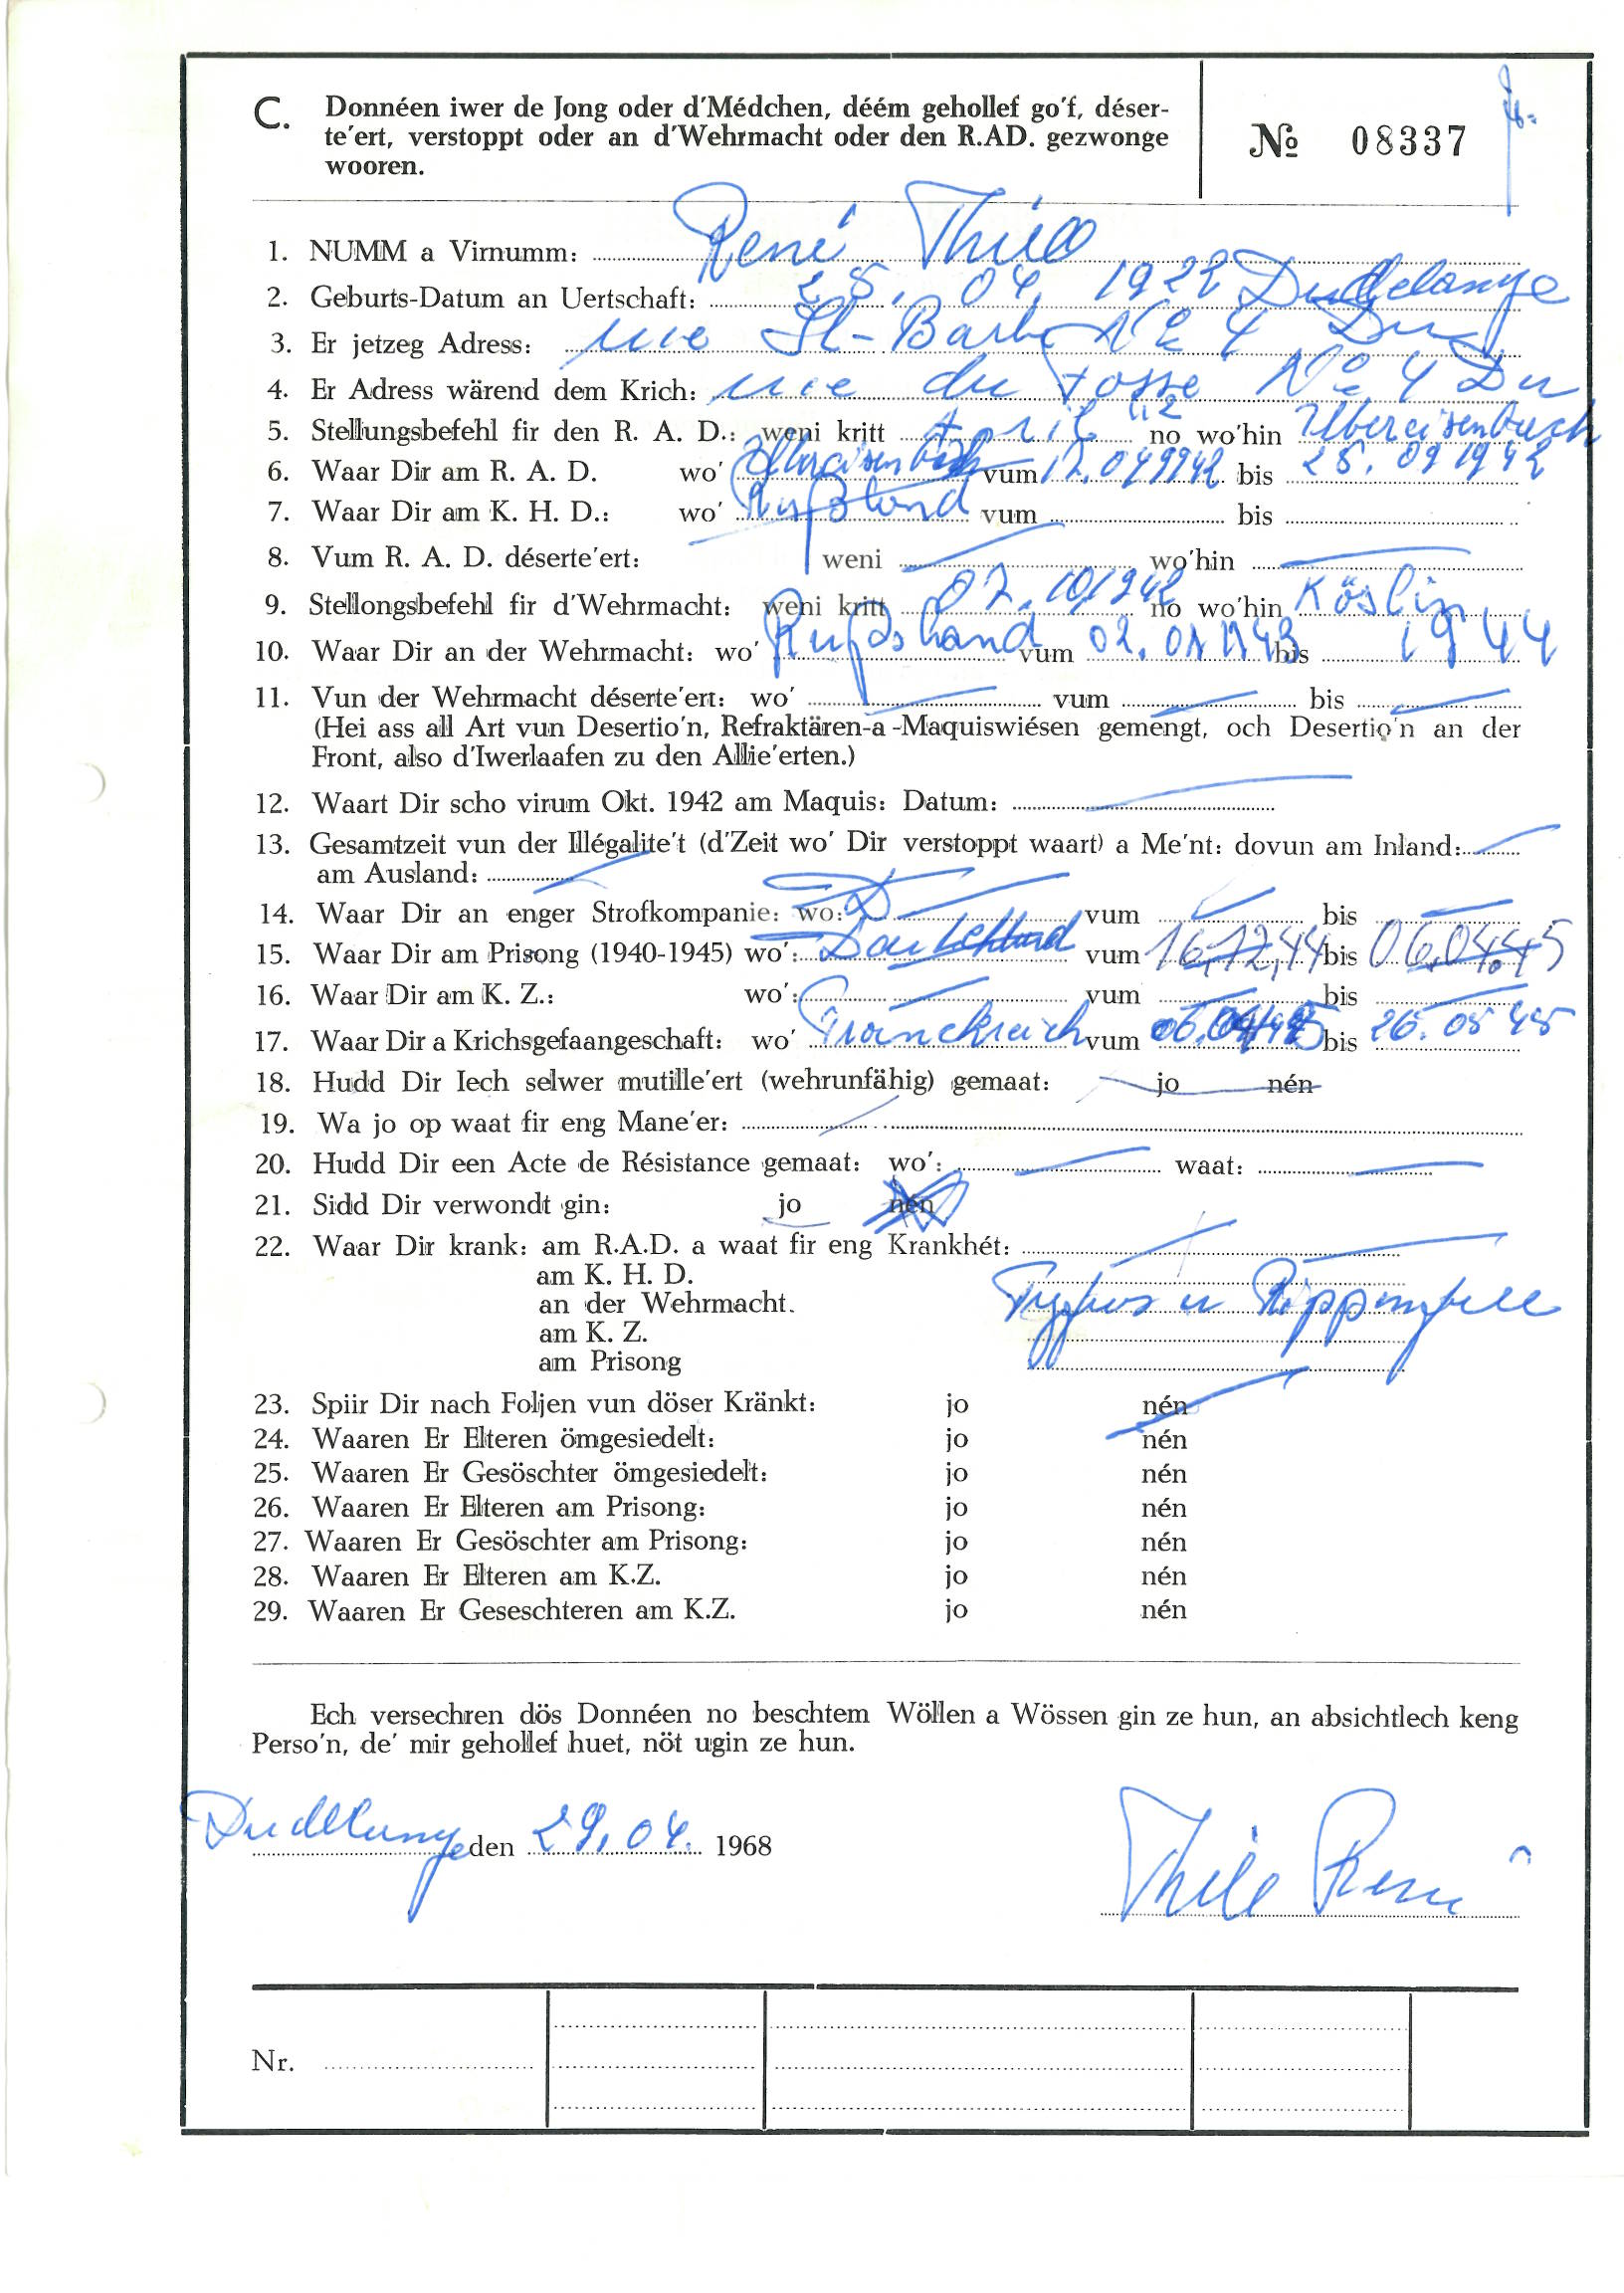 C. Donnéen iwer de Jong oder d'Médchen, déém gehollef go'f, déser-
te'ert, verstoppt oder an d'Wehrmacht oder den R.AD. gezwonge
wooren.
№ 08337
1. NUMM a Virnumm: René Thill
2. Geburts-Datum an Uertschaft: 25. 04. 1922 Dudelange
3. Er jetzeg Adress: rue St-Barbe No 4 Dud
4. Er Adress wärend dem Krich: rue du Fossé No 4 Du
5. Stellungsbefehl fir den R. A. D.: weni kritt April 42 no wo'hin
6. Waar Dir am R. A. D. wo' vum 17.041942 bis 25.091942
7. Waar Dir am K. H. D.: wo' Rußland vum bis
8. Vum R. A. D. déserte'ert: weni wo'hin
9. Stellongsbefehl fir d'Wehrmacht: weni kritt 07.10.1942 no wo'hin Köslin
10. Waar Dir an der Wehrmacht: wo' Rußland vum 02.01 1943 bis 1944
11. Vun der Wehrmacht déserte'ert: wo' vum bis
(Hei ass all Art vun Desertio'n, Refraktären-a-Maquiswiésen gemengt, och Desertio'n an der
Front, also d'Iwerlaafen zu den Allie'erten.)
12. Waart Dir scho virum Okt. 1942 am Maquis: Datum:
13. Gesamtzeit vun der Illégalite't (d'Zeit wo' Dir verstoppt waart) a Me'nt: dovun am Inland:
am Ausland:
14. Waar Dir an enger Strofkompanie: wo: vum bis
15. Waar Dir am Prisong (1940-1945) wo': vum 16.12.44 bis 06.04.45
16. Waar Dir am K. Z.: wo': vum bis
17. Waar Dir a Krichsgefaangeschaft: wo' Franckreich vum bis 26.05 45
18. Hudd Dir Iech selwer mutille'ert (wehrunfähig) gemaat: jo nén
19. Wa jo op waat fir eng Mane'er:
20. Hudd Dir een Acte de Résistance gemaat: wo': waat:
21. Sidd Dir verwondt gin: jo nén
22. Waar Dir krank: am R.A.D. a waat fir eng Krankhét:
am K. H. D.
an der Wehrmacht. Typhus u Rippenfell
am K. Z.
am Prisong
23. Spiir Dir nach Foljen vun döser Kränkt: jo nén
24. Waaren Er Elteren ömgesiedelt: jo nén
25. Waaren Er Gesöschter ömgesiedelt: jo nén
26. Waaren Er Elteren am Prisong: jo nén
27. Waaren Er Gesöschter am Prisong: jo nén
28. Waaren Er Elteren am K.Z. jo nén
29. Waaren Er Geseschteren am K.Z. jo nén
Ech versechren dös Donnéen no beschtem Wöllen a Wössen gin ze hun, an absichtlech keng
Perso'n, de' mir gehollef huet, nöt ugin ze hun.
Dudelange den 29.04. 1968
Thill René
Nr.